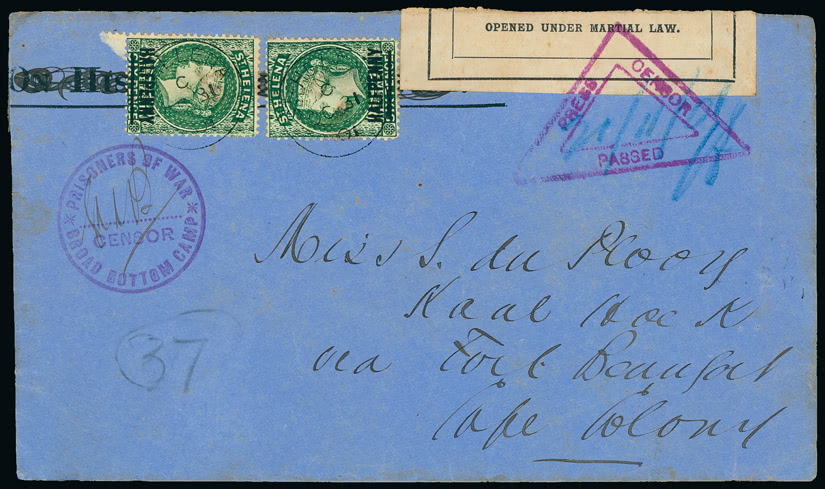 OPENED UNDER MARTIAL LAW.
On His
ST. HELENA
HALFPENNY
ST. HELENA
HALFPENNY
PRESS CENSOR
PASSED
PRISONERS OF WAR
CENSOR
BROAD BOTTOM CAMP
Miss S. du Plooy
Kaal Hoek
via Fort Beaufort
Cape Colony
37